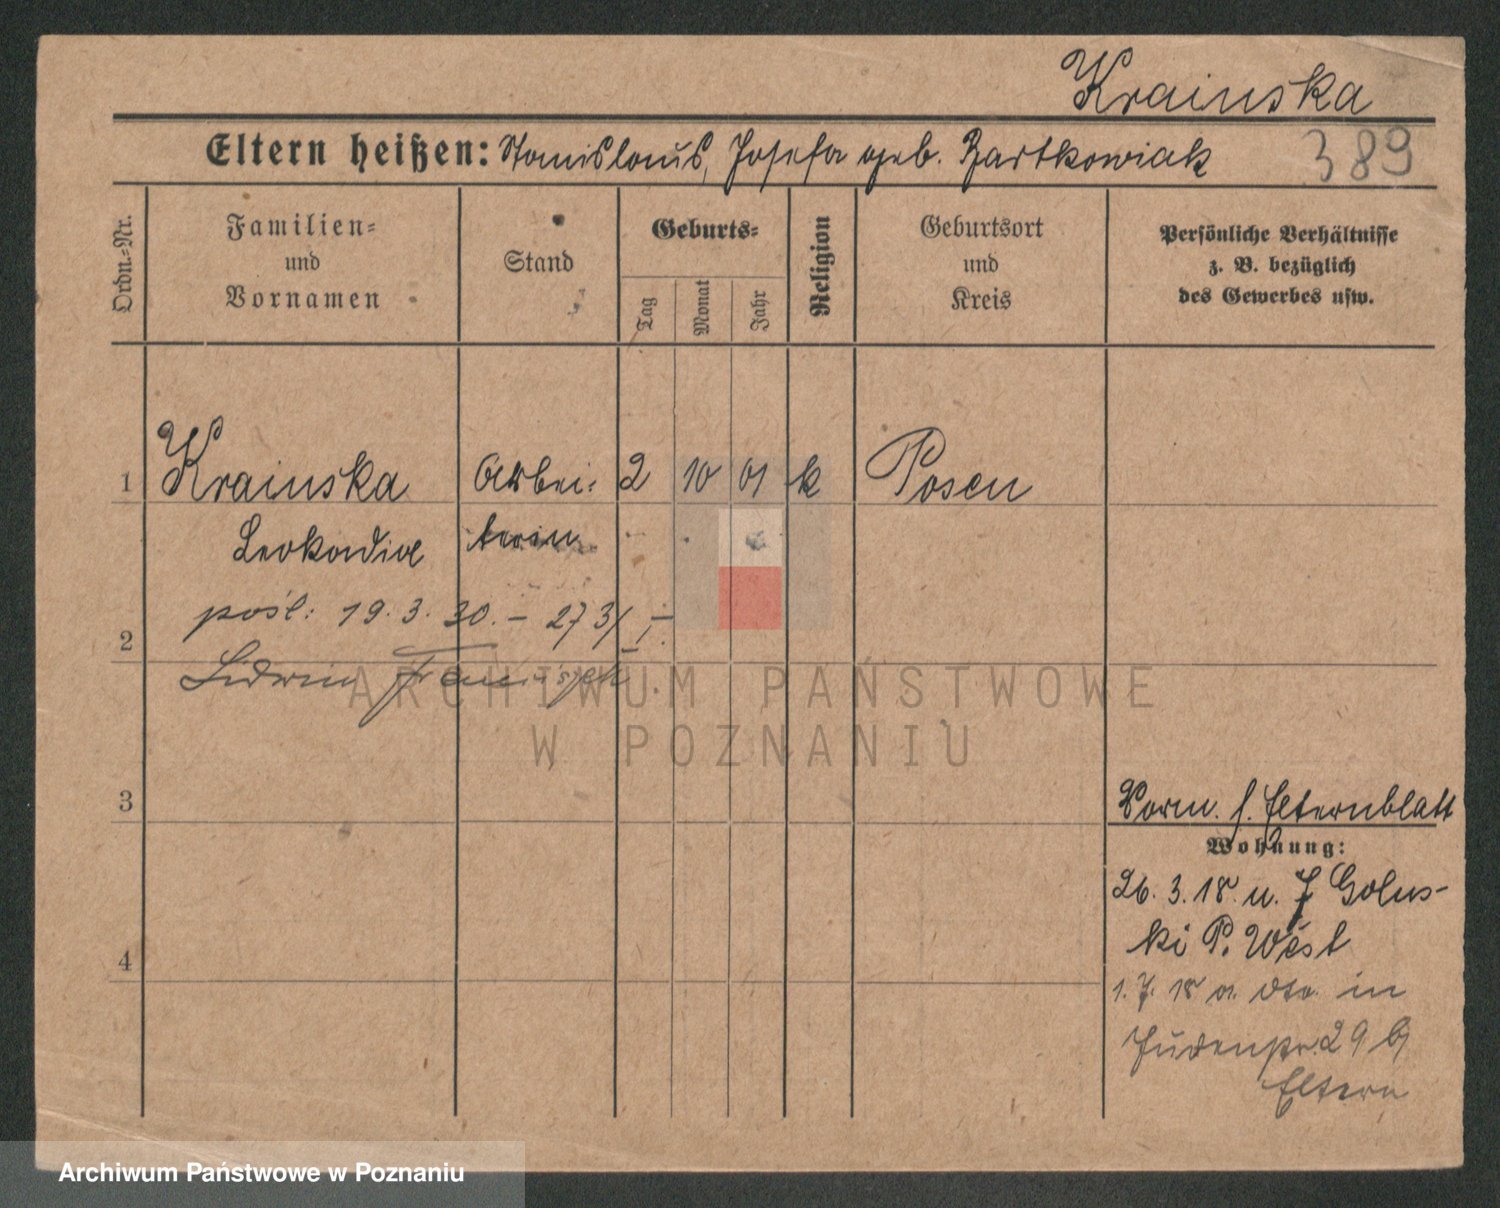 Krainska
Eltern heißen: Stanislaus, Josefa geb. Bartkowiak
389
Ordn.-Nr.
Familien-
und
Vornamen
Stand
Geburts-
Tag
Monat
Jahr
Religion
Geburtsort
und
Kreis
Persönliche Verhältnisse
z. B. bezüglich
des Gewerbes usw.
1 Krainska Arbei- 2 10 01 k Posen
Leokadia terin
pośl: 19. 3. 30. – 273/
2
Ludwin Franciszek
ARCHIWUM PAŃSTWOWE
W POZNANIU
3
Vorm. s. Elternblatt
Wohnung:
26. 3. 18. u. J Golus-
ki P. West
4
1. 7. 18 a. dto. in
Judenstr. 29 b/
Eltern
Archiwum Państwowe w Poznaniu